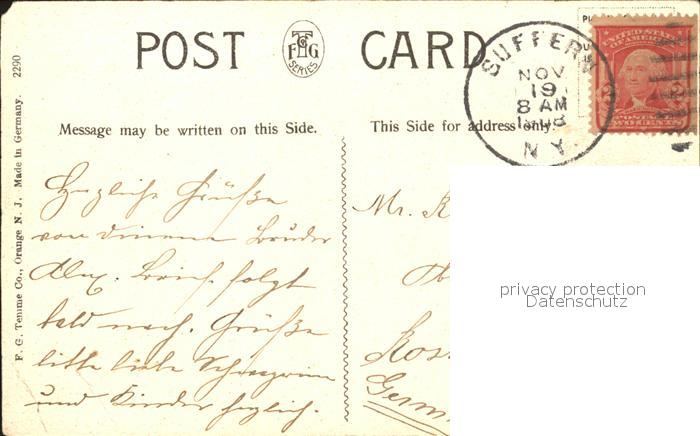 POST CARD
F T G Co
SERIES
SUFFERN
NOV
19
8 AM
1908
N.Y.
UNITED STATES
OF AMERICA
POSTAGE
TWO CENTS
2290
F. G. Temme Co., Orange N. J. Made in Germany.
Message may be written on this Side.
This Side for address only.
Herzliche Grüße
von deinem Bruder
Alex. Brief folgt
bald nach. Grüße
bitte liebe Schwägerin
und Kinder herzlich.
Mr. K
Germ
privacy protection
Datenschutz